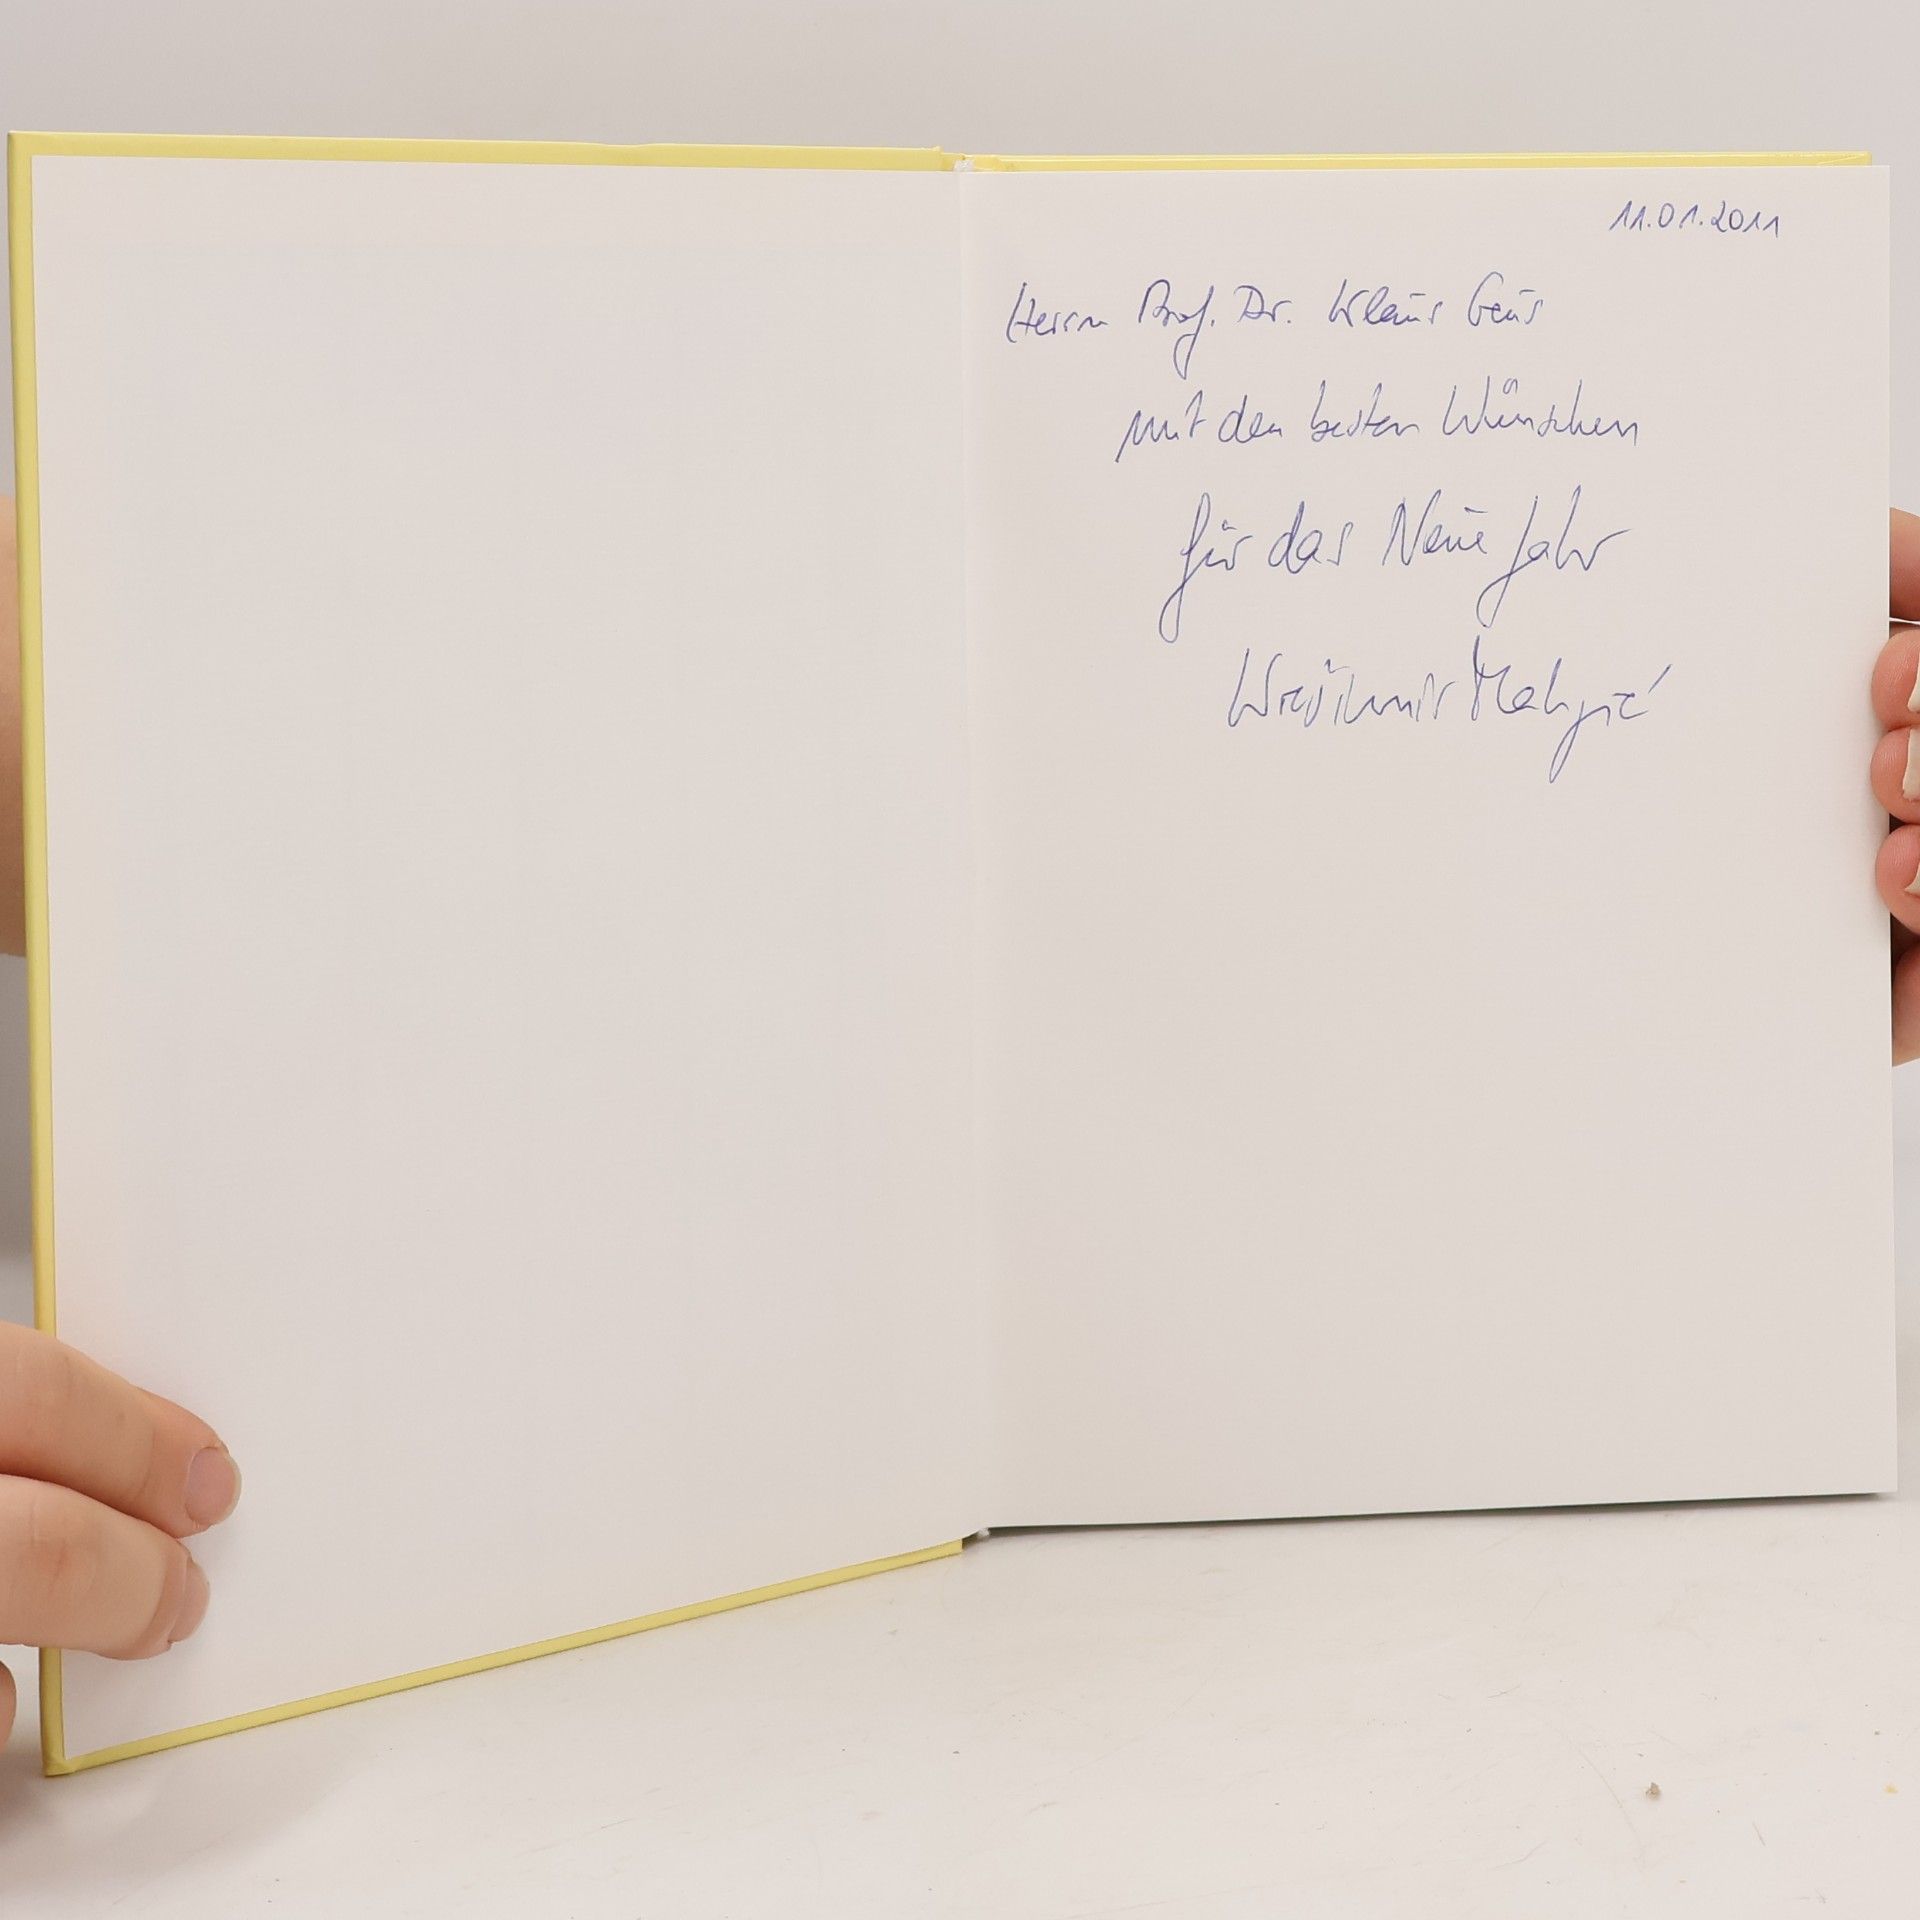 11.01.2011
Herrn Prof. Dr. Klaus Geus
mit den besten Wünschen
für das Neue Jahr